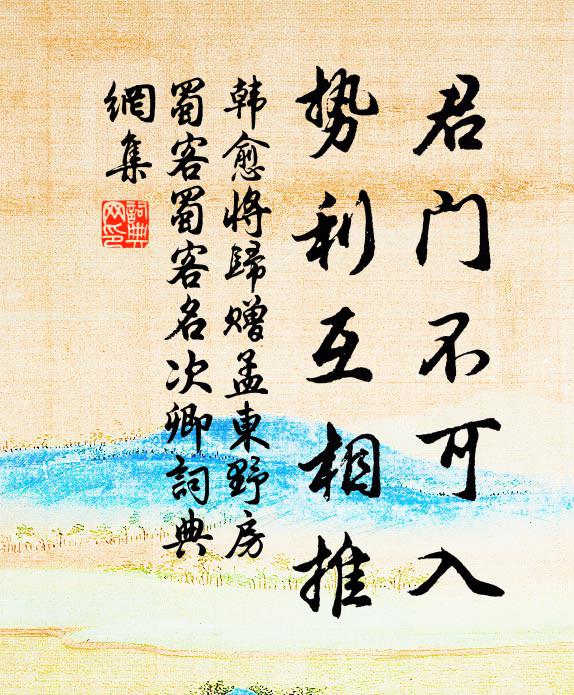 君门不可入
势利互相推
韩愈将歸赠孟東野房
蜀客蜀客名次卿詞典
網集
詞典
网印